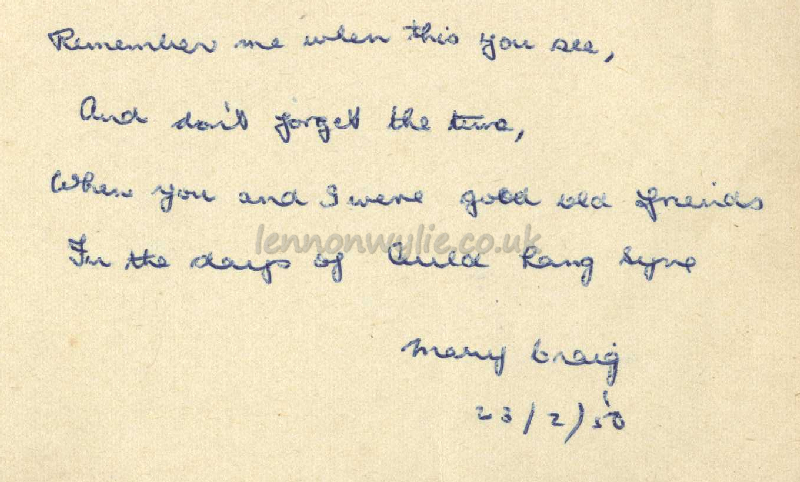 Remember me when this you see,
And don't forget the time,
When you and I were good old friends
lennonwylie.co.uk
In the days of Auld Lang Syne
Mary Craig
23/2/50